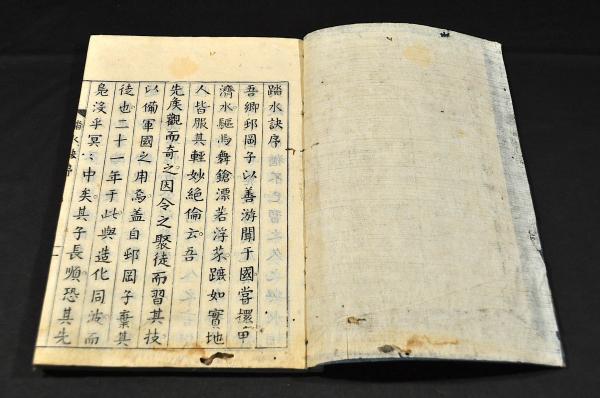 踏水訣序
吾鄉邨岡子以善游聞于國嘗擐甲
濟水驅馬舞鎗漂若浮萍蹍如實地
人皆服其輕妙絕倫云吾
先矦觀而奇之因令之聚徒而習其技
以備軍國之用焉蓋自邨岡子棄其
徒也二十一年于此與造化同波而
皃沒乎冥〻中矣其子長順恐其先
踏水訣序